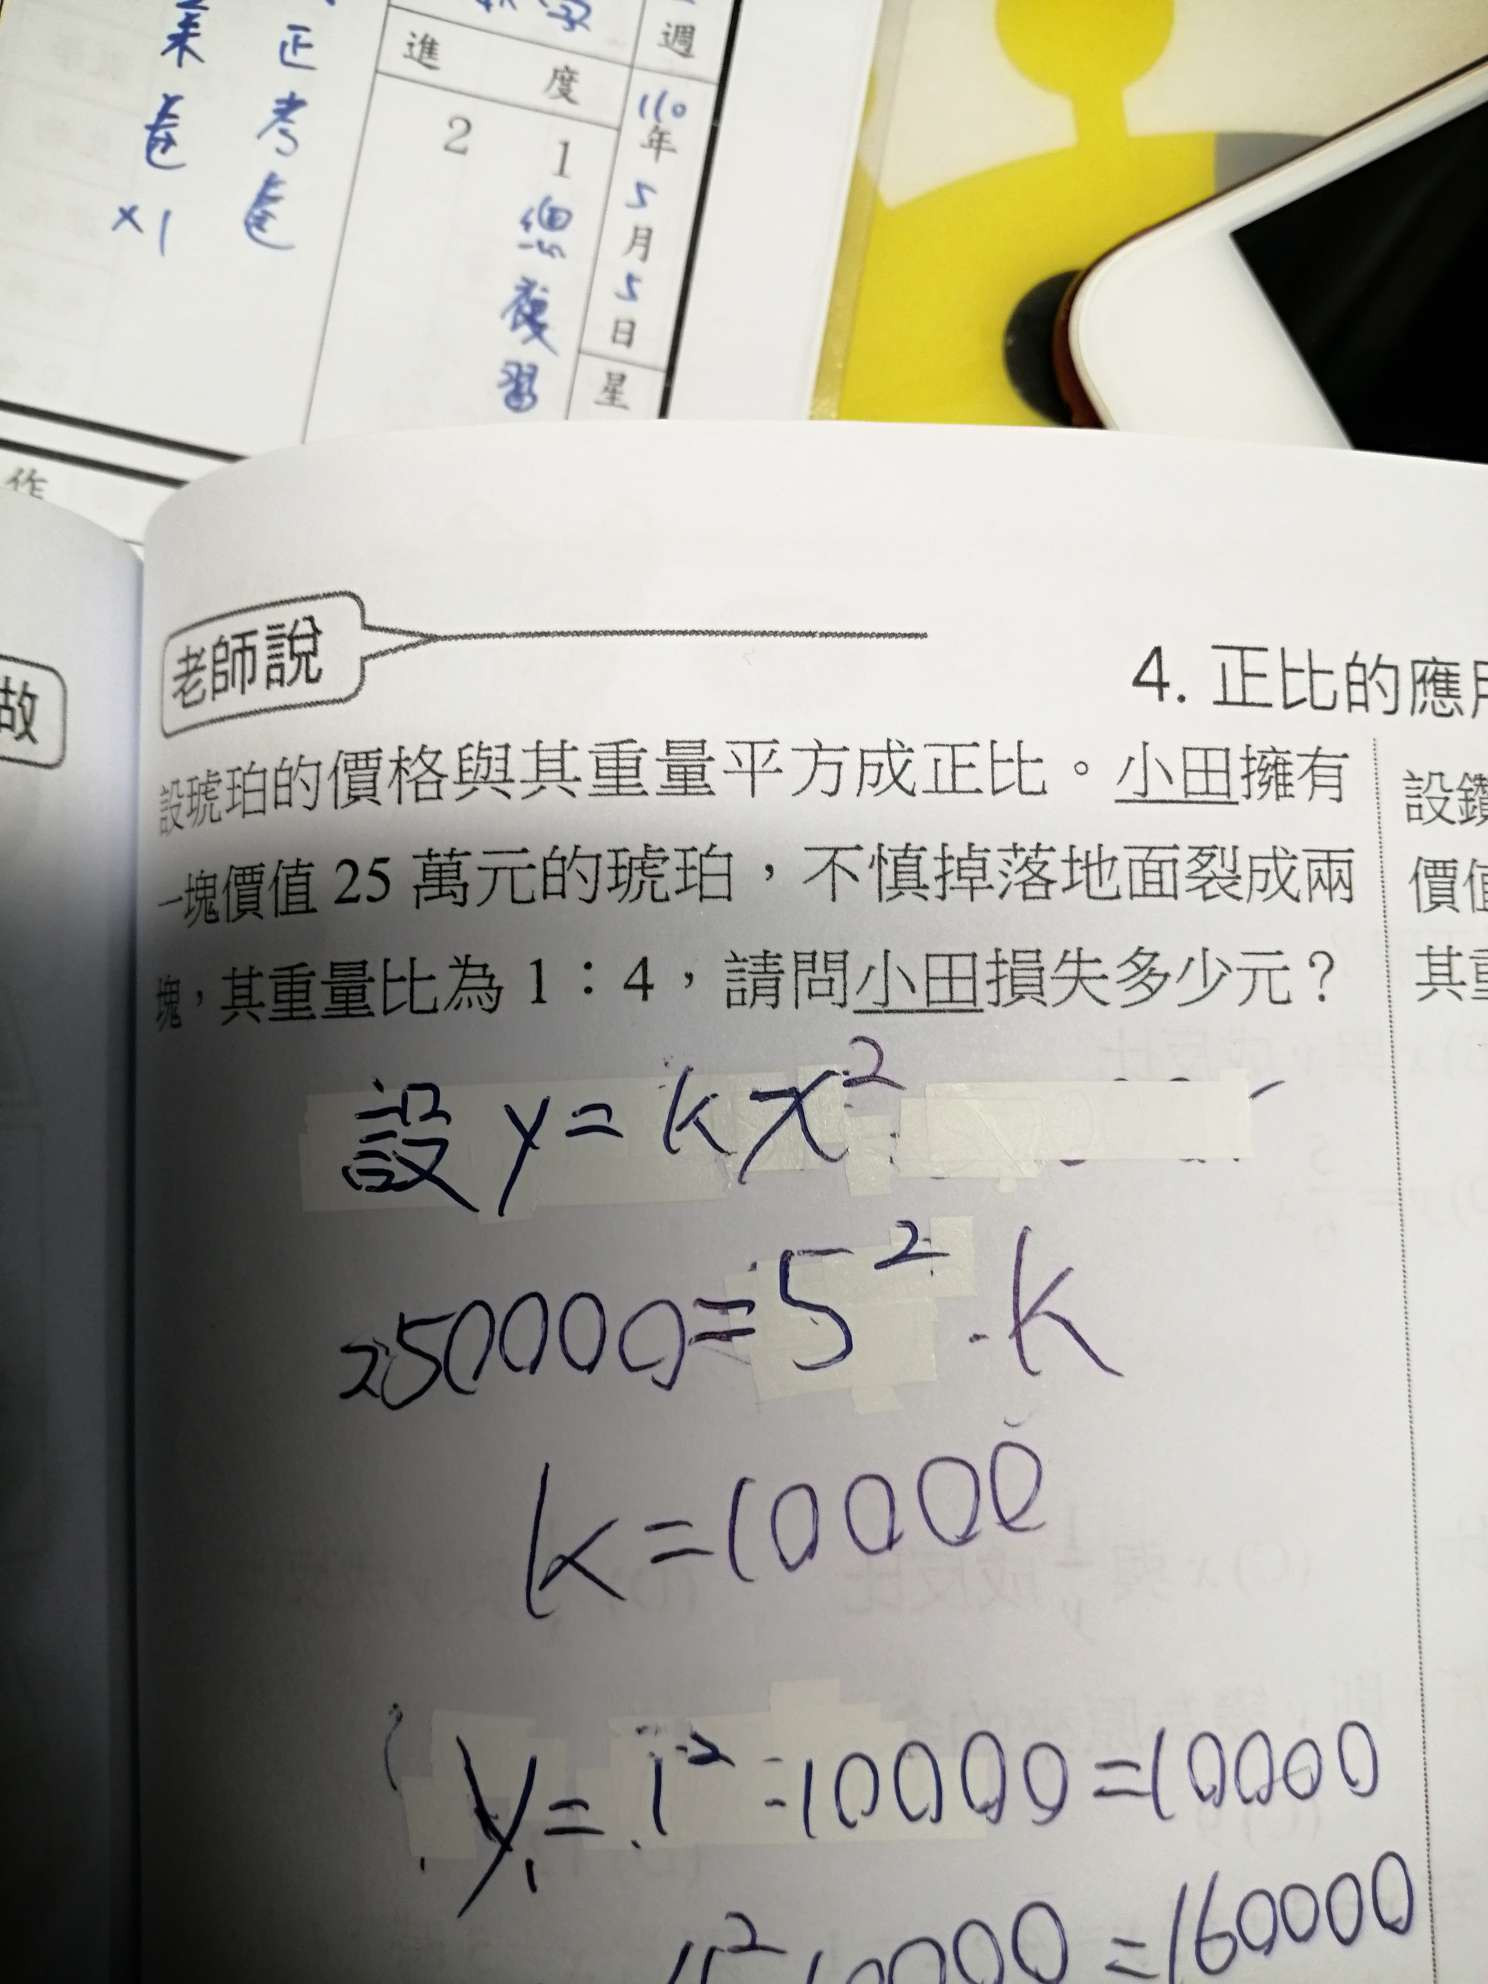 業 正
卷 考
×1 卷
進度
週
110年5月5日
星
2 1
總複習
作
故
老師說
4. 正比的應
設琥珀的價格與其重量平方成正比。小田擁有
一塊價值 25 萬元的琥珀,不慎掉落地面裂成兩
塊,其重量比為 1:4,請問小田損失多少元?
設鑽
價值
其重
設 y=kx²
250000=5²·k
k=10000
y=1²·10000=10000
4²·10000=160000